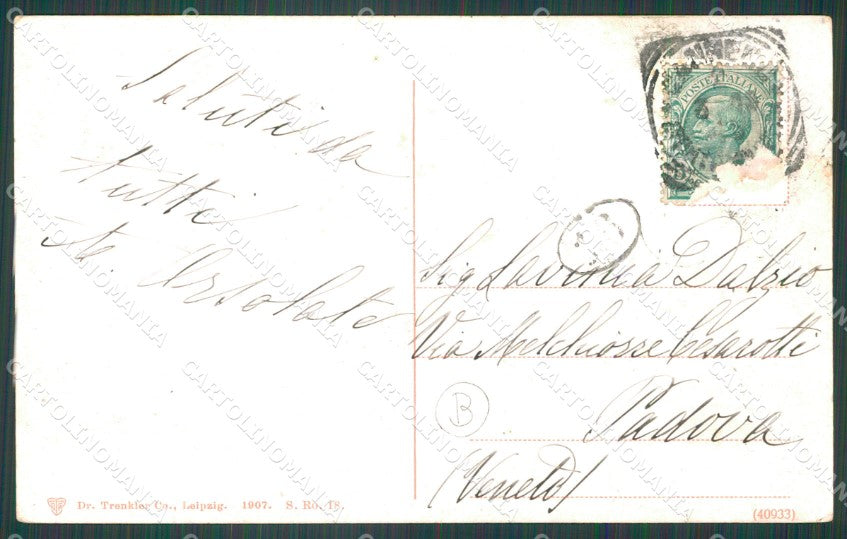 Saluti da
tutti
POSTE ITALIANE
Sig Lavinia Dalzio
Via Melchiorre Cesarotti
Padova
(Veneto)
B
Dr. Trenkler Co., Leipzig. 1907. S. Ro. 18.
(40933)
CARTOLINOMANIA